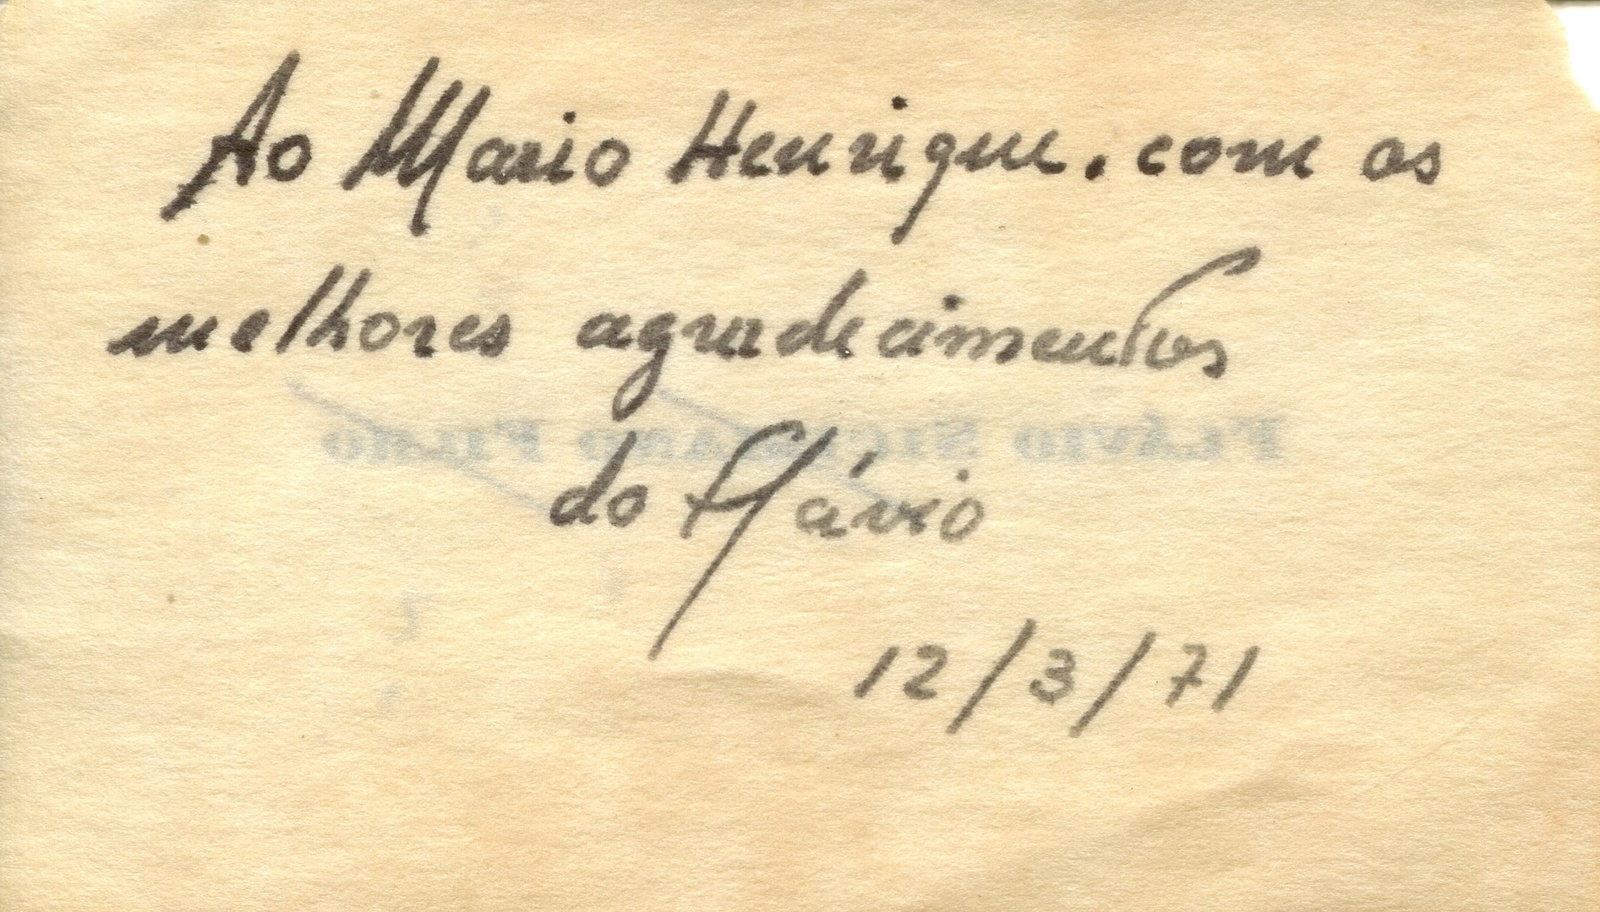 Ao Mario Henrique. com os
melhores agradecimentos
FLÁVIO FILHO
do Flávio
12/3/71